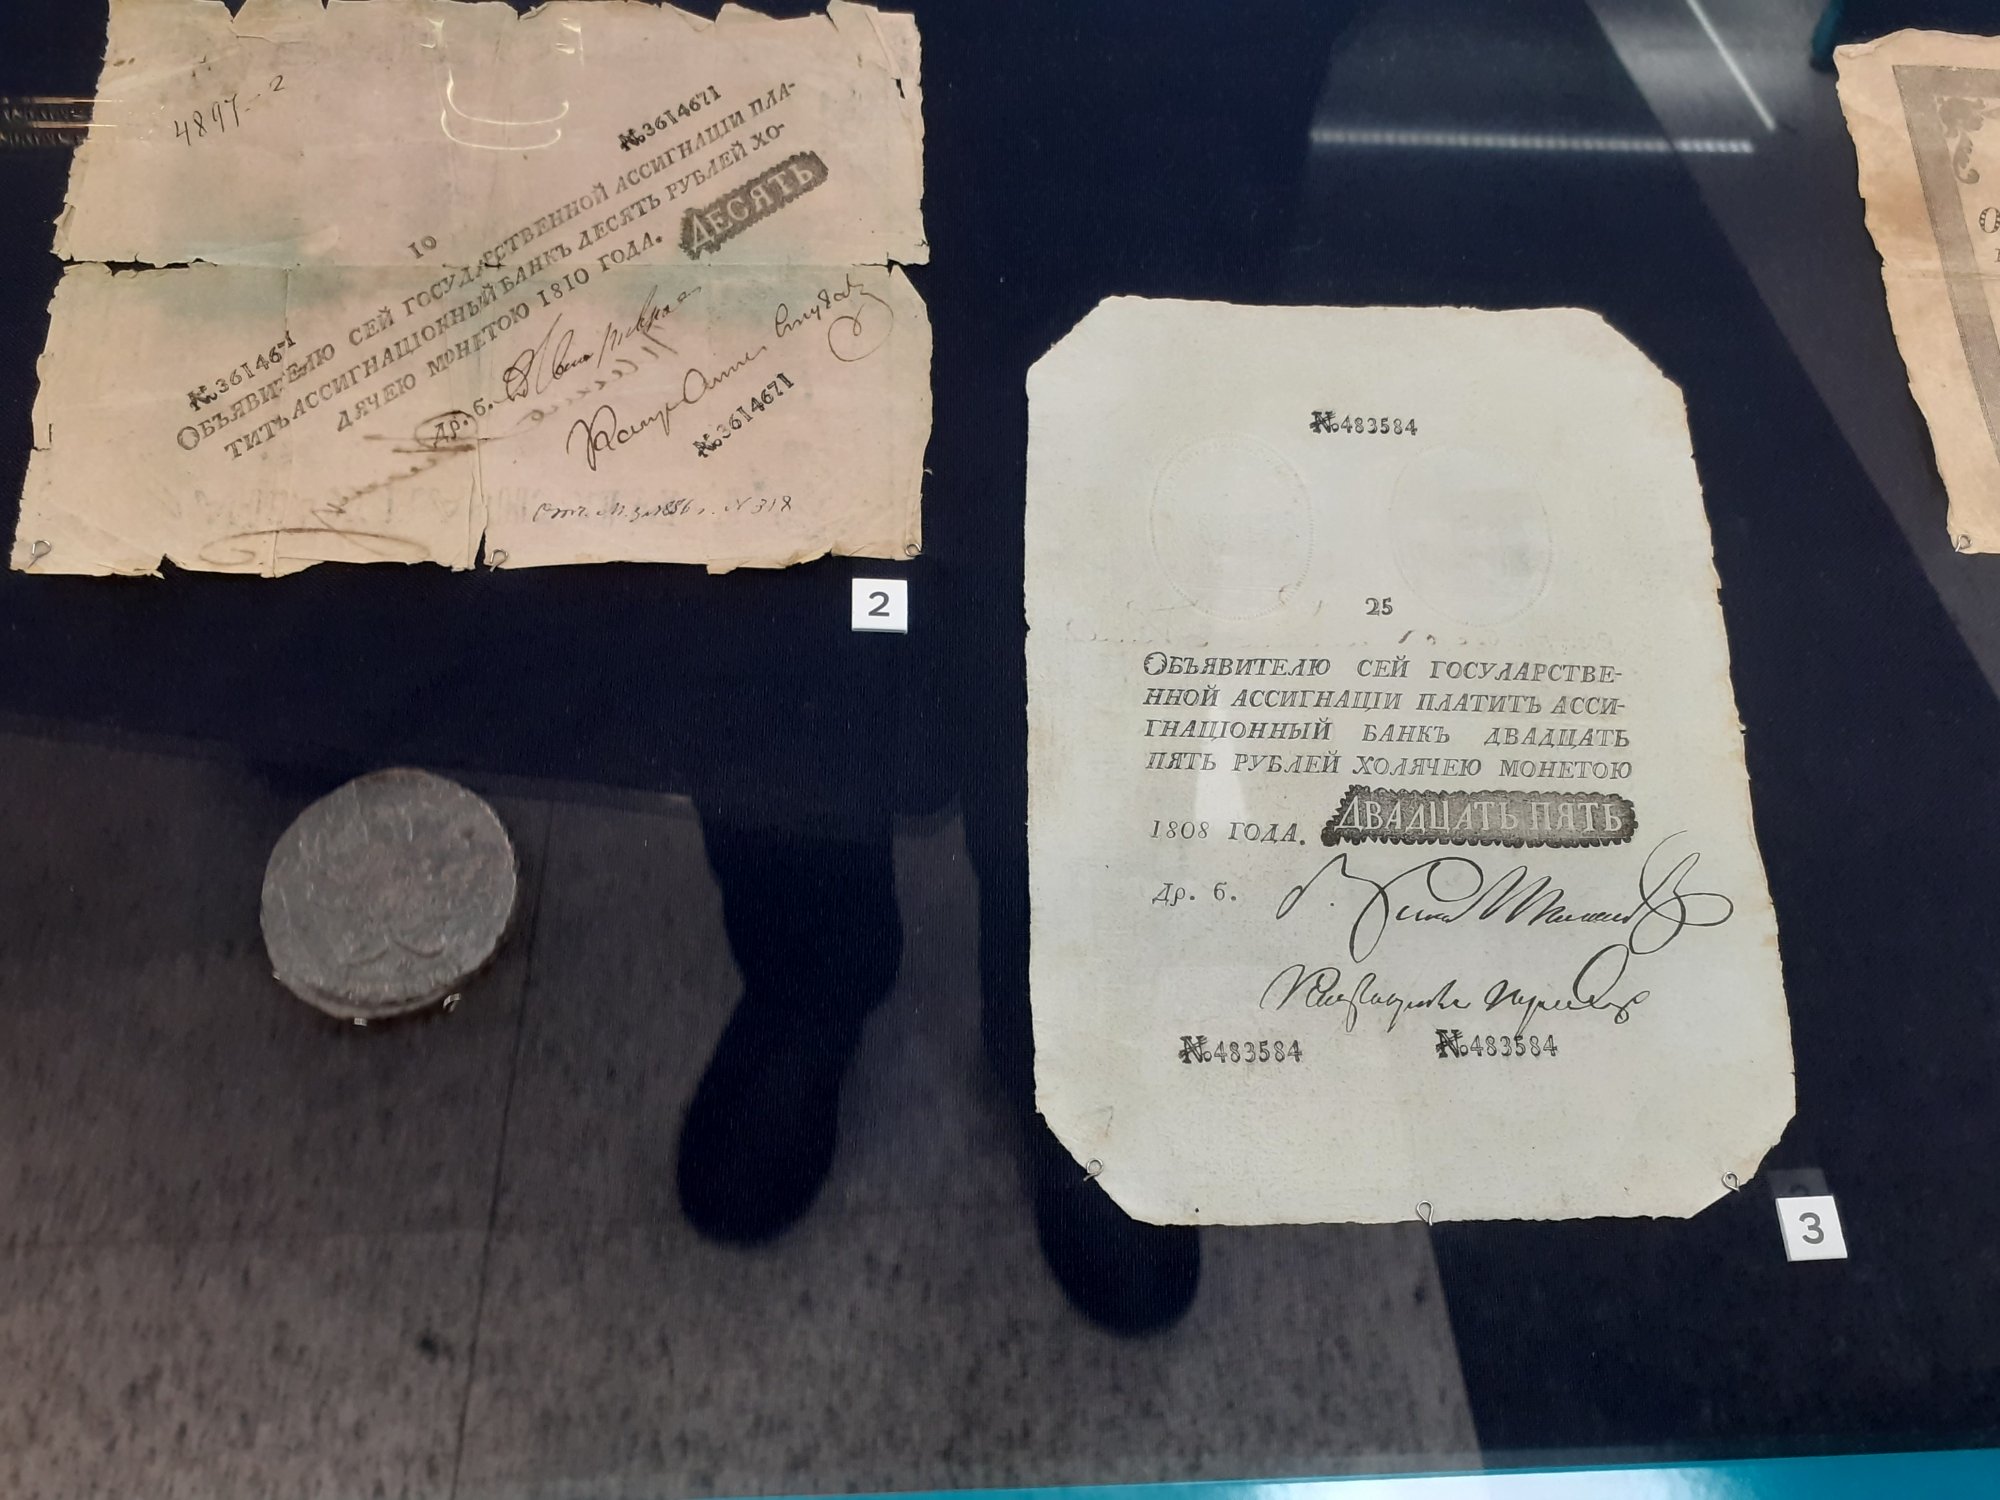 4897-2
№3614671
10
№3614671
ОБЪЯВИТЕЛЮ СЕЙ ГОСУДАРСТВЕННОЙ АССИГНАЦІИ ПЛА-
ТИТЪ АССИГНАЦІОННЫЙ БАНКЪ ДЕСЯТЬ РУБЛЕЙ ХО-
ДЯЧЕЮ МОНЕТОЮ 1810 ГОДА. ДЕСЯТЬ
др. б.
№3614671
№ 318
2
№483584
25
ОБЪЯВИТЕЛЮ СЕЙ ГОСУЛАРСТВЕ-
ННОЙ АССИГНАЦІИ ПЛАТИТЪ АССИ-
ГНАЦІОННЫЙ БАНКЪ ДВАДЦАТЬ
ПЯТЬ РУБЛЕЙ ХОЛЯЧЕЮ МОНЕТОЮ
1808 ГОДА. ДВАДЦАТЬ ПЯТЬ
др. б.
№483584 №483584
3